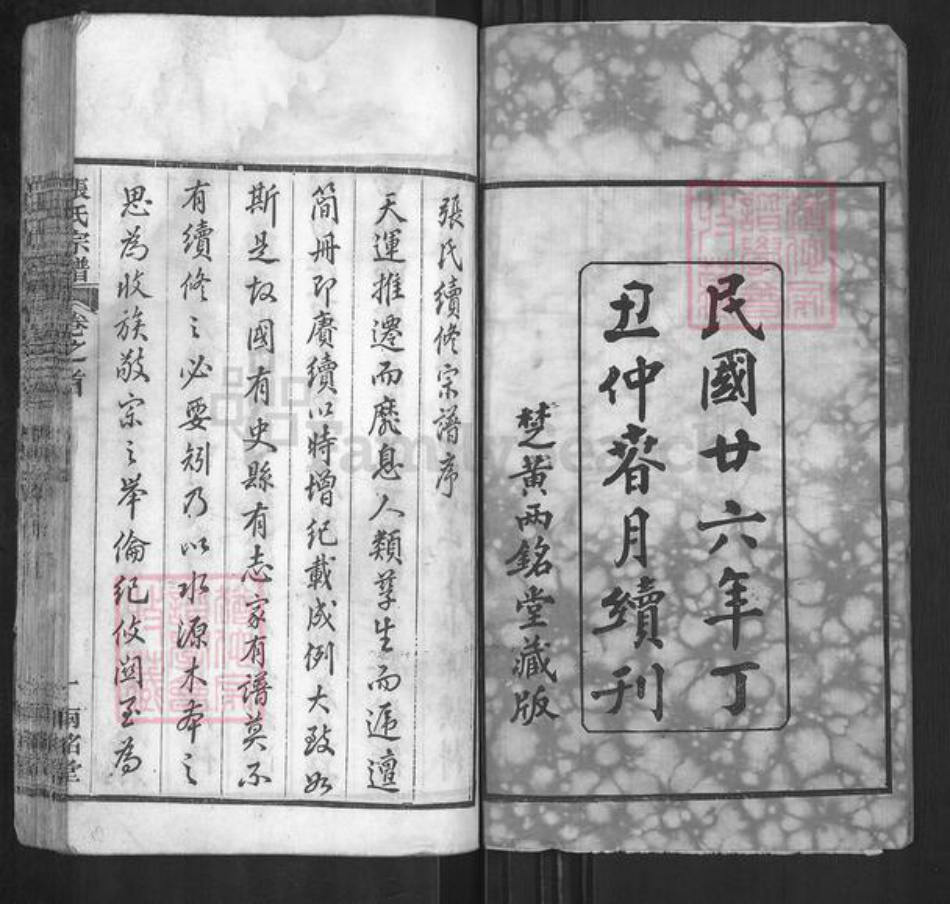 民國廿六年丁
丑仲春月續刊
楚黃兩銘堂藏版
張氏續修宗譜序
天運推遷而靡息人類孳生而遞邅
簡冊即賡續以時增紀載成例大致如
斯是故國有史縣有志家有譜莫不
有續修之必要矧乃以水源木本之
思為收族敬宗之舉倫紀攸關至為
張氏宗譜 卷之首 一 兩銘堂
FamilySearch